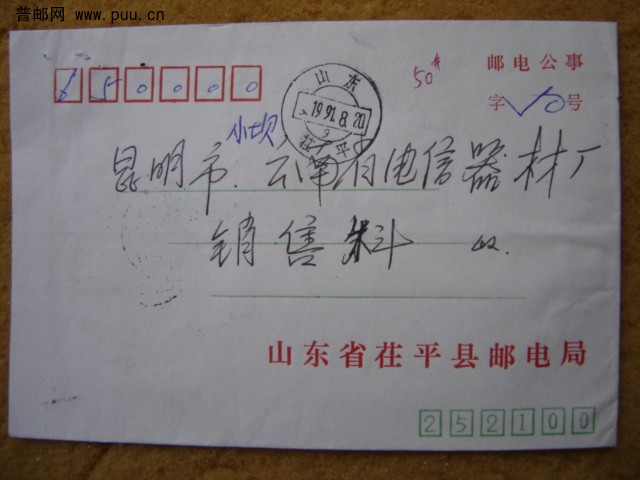 普邮网 www.puu.cn
650000
50#
邮电公事
字 号
山东
1991.8.20
9
茌平
小坝
昆明市.云南省电信器材厂
销售科 收.
山东省茌平县邮电局
252100